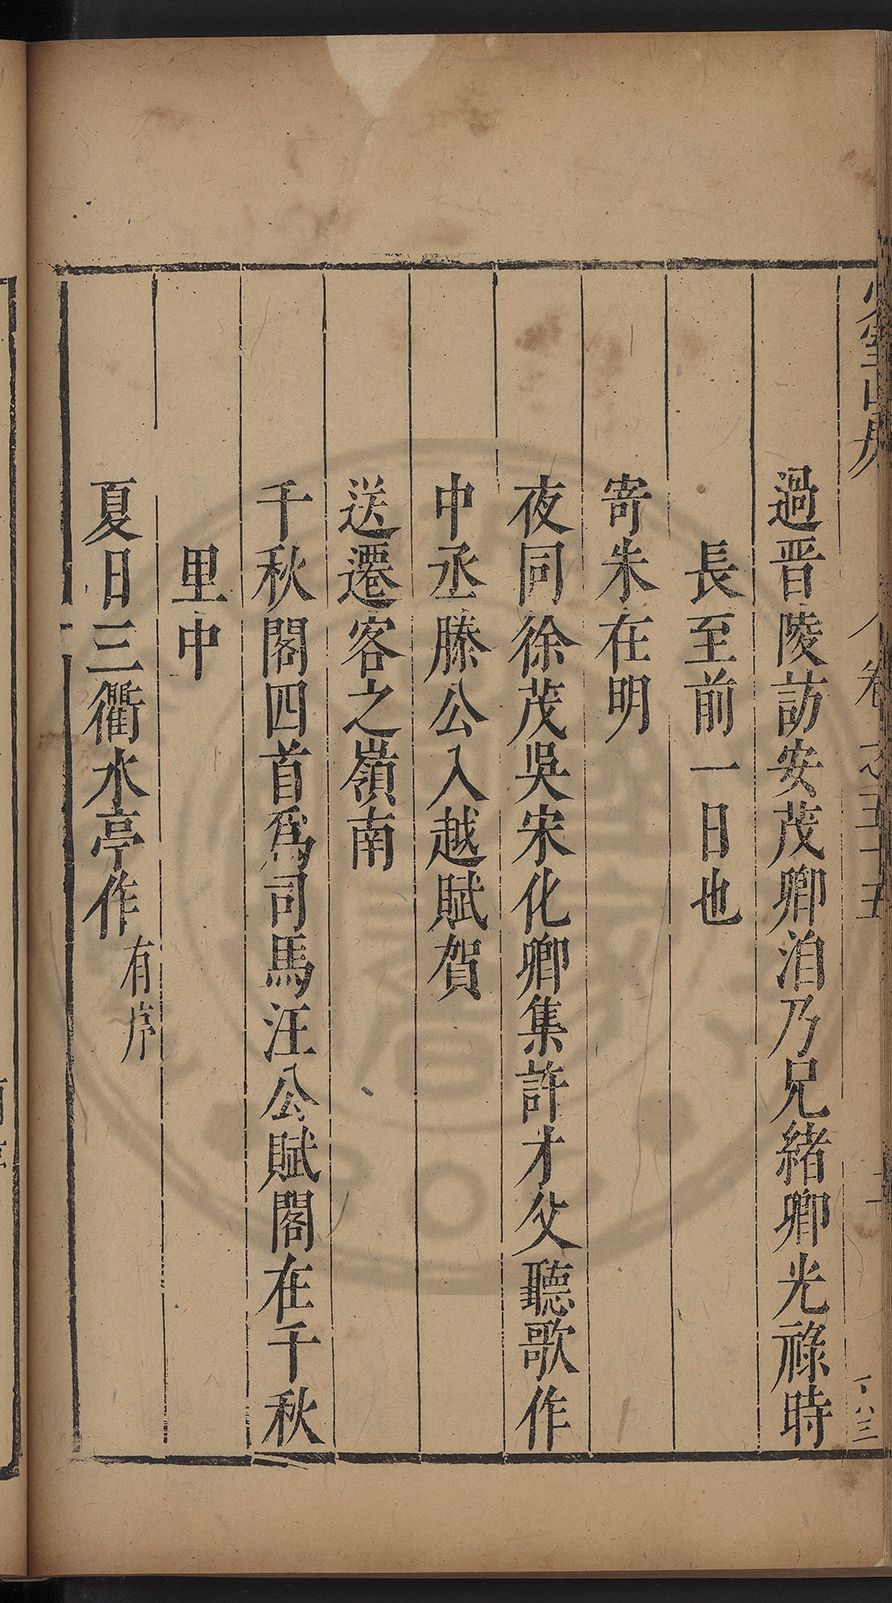 過晋陵訪安茂卿洎乃兄緒卿光祿時
長至前一日也
寄朱在明
夜同徐茂吳宋化卿集許才父聽歌作
中丞滕公入越賦賀
送遷客之嶺南
千秋閣四首爲司馬汪公賦閣在千秋
里中
夏日三衢水亭作有序